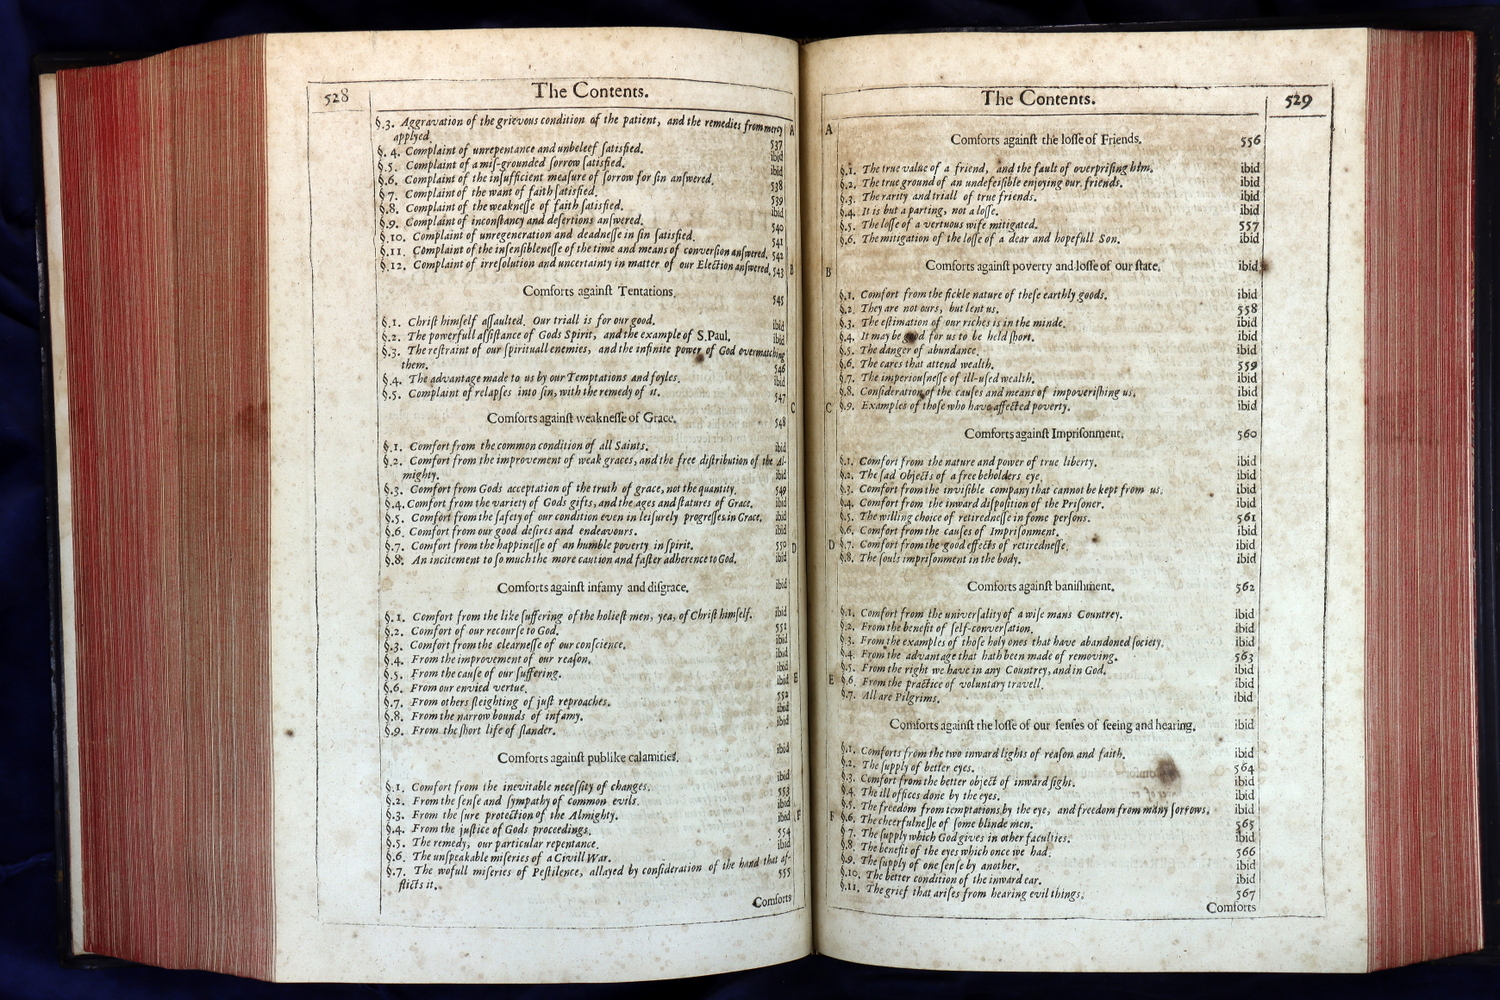 528
The Contents.
§.3. Aggravation of the grievous condition of the patient, and the remedies from mercy
applyed. 537
§.4. Complaint of unrepentance and unbeleef ſatisfied. ibid
§.5. Complaint of a miſ-grounded ſorrow ſatisfied. ibid
§.6. Complaint of the inſufficient meaſure of ſorrow for ſin anſwered. 538
§.7. Complaint of the want of faith ſatisfied. 539
§.8. Complaint of the weakneſſe of faith ſatisfied. ibid
§.9. Complaint of inconſtancy and deſertions anſwered. 540
§.10. Complaint of unregeneration and deadneſſe in ſin ſatisfied. 541
§.11. Complaint of the inſenſibleneſſe of the time and means of converſion anſwered. 542
§.12. Complaint of irreſolution and uncertainty in matter of our Election anſwered. 543
Comforts againſt Tentations. 545
§.1. Chriſt himſelf aſſaulted. Our triall is for our good. ibid
§.2. The powerfull aſſiſtance of Gods Spirit, and the example of S. Paul. ibid
§.3. The reſtraint of our ſpirituall enemies, and the infinite power of God overmatching
them. 546
§.4. The advantage made to us by our Temptations and foyles. ibid
§.5. Complaint of relapſes into ſin, with the remedy of it. 547
Comforts againſt weakneſſe of Grace. 548
§.1. Comfort from the common condition of all Saints. ibid
§.2. Comfort from the improvement of weak graces, and the free diſtribution of the Al-
mighty. ibid
§.3. Comfort from Gods acceptation of the truth of grace, not the quantity. 549
§.4. Comfort from the variety of Gods gifts, and the ages and ſtatures of Grace. ibid
§.5. Comfort from the ſafety of our condition even in leiſurely progreſſes in Grace. ibid
§.6. Comfort from our good deſires and endeavours. ibid
§.7. Comfort from the happineſſe of an humble poverty in ſpirit. 550
§.8. An incitement to ſo much the more caution and faſter adherence to God. ibid
Comforts againſt infamy and diſgrace. ibid
§.1. Comfort from the like ſuffering of the holieſt men, yea, of Chriſt himſelf. ibid
§.2. Comfort of our recourſe to God. 551
§.3. Comfort from the clearneſſe of our conſcience. ibid
§.4. From the improvement of our reaſon. ibid
§.5. From the cauſe of our ſuffering. ibid
§.6. From our envied vertue. ibid
§.7. From others ſleighting of juſt reproaches. 552
§.8. From the narrow bounds of infamy. ibid
§.9. From the ſhort life of ſlander. ibid
Comforts againſt publike calamities. ibid
§.1. Comfort from the inevitable neceſſity of changes. ibid
§.2. From the ſenſe and ſympathy of common evils. 553
§.3. From the ſure protection of the Almighty. ibid
§.4. From the juſtice of Gods proceedings. ibid
§.5. The remedy, our particular repentance. 554
§.6. The unſpeakable miſeries of a Civill War. ibid
§.7. The wofull miſeries of Peſtilence, allayed by conſideration of the hand that af-
flicts it. 555
Comforts
A
B
C
D
E
F
The Contents.
529
Comforts againſt the loſſe of Friends. 556
§.1. The true value of a friend, and the fault of overpriſing him. ibid
§.2. The true ground of an undefeiſible enjoying our friends. ibid
§.3. The rarity and triall of true friends. ibid
§.4. It is but a parting, not a loſſe. ibid
§.5. The loſſe of a vertuous wife mitigated. 557
§.6. The mitigation of the loſſe of a dear and hopefull Son. ibid
Comforts againſt poverty and loſſe of our ſtate. ibid
§.1. Comfort from the fickle nature of theſe earthly goods. ibid
§.2. They are not ours, but lent us. 558
§.3. The eſtimation of our riches is in the minde. ibid
§.4. It may be good for us to be held ſhort. ibid
§.5. The danger of abundance. ibid
§.6. The cares that attend wealth. 559
§.7. The imperiouſneſſe of ill-uſed wealth. ibid
§.8. Conſideration of the cauſes and means of impoveriſhing us. ibid
§.9. Examples of thoſe who have affected poverty. ibid
Comforts againſt Impriſonment. 560
§.1. Comfort from the nature and power of true liberty. ibid
§.2. The ſad Objects of a free beholders eye. ibid
§.3. Comfort from the inviſible company that cannot be kept from us. ibid
§.4. Comfort from the inward diſpoſition of the Priſoner. ibid
§.5. The willing choice of retiredneſſe in ſome perſons. 561
§.6. Comfort from the cauſes of Impriſonment. ibid
§.7. Comfort from the good effects of retiredneſſe. ibid
§.8. The ſouls impriſonment in the body. ibid
Comforts againſt baniſhment. 562
§.1. Comfort from the univerſality of a wiſe mans Countrey. ibid
§.2. From the benefit of ſelf-converſation. ibid
§.3. From the examples of thoſe holy ones that have abandoned ſociety. ibid
§.4. From the advantage that hath been made of removing. 563
§.5. From the right we have in any Countrey, and in God. ibid
§.6. From the practice of voluntary travell. ibid
§.7. All are Pilgrims. ibid
Comforts againſt the loſſe of our ſenſes of ſeeing and hearing. ibid
§.1. Comforts from the two inward lights of reaſon and faith. ibid
§.2. The ſupply of better eyes. 564
§.3. Comfort from the better object of inward ſight. ibid
§.4. The ill offices done by the eyes. ibid
§.5. The freedom from temptations by the eye, and freedom from many ſorrows. ibid
§.6. The cheerfulneſſe of ſome blinde men. 565
§.7. The ſupply which God gives in other faculties. ibid
§.8. The benefit of the eyes which once we had. 566
§.9. The ſupply of one ſenſe by another. ibid
§.10. The better condition of the inward ear. ibid
§.11. The grief that ariſes from hearing evil things. 567
Comforts
A
B
C
D
E
F